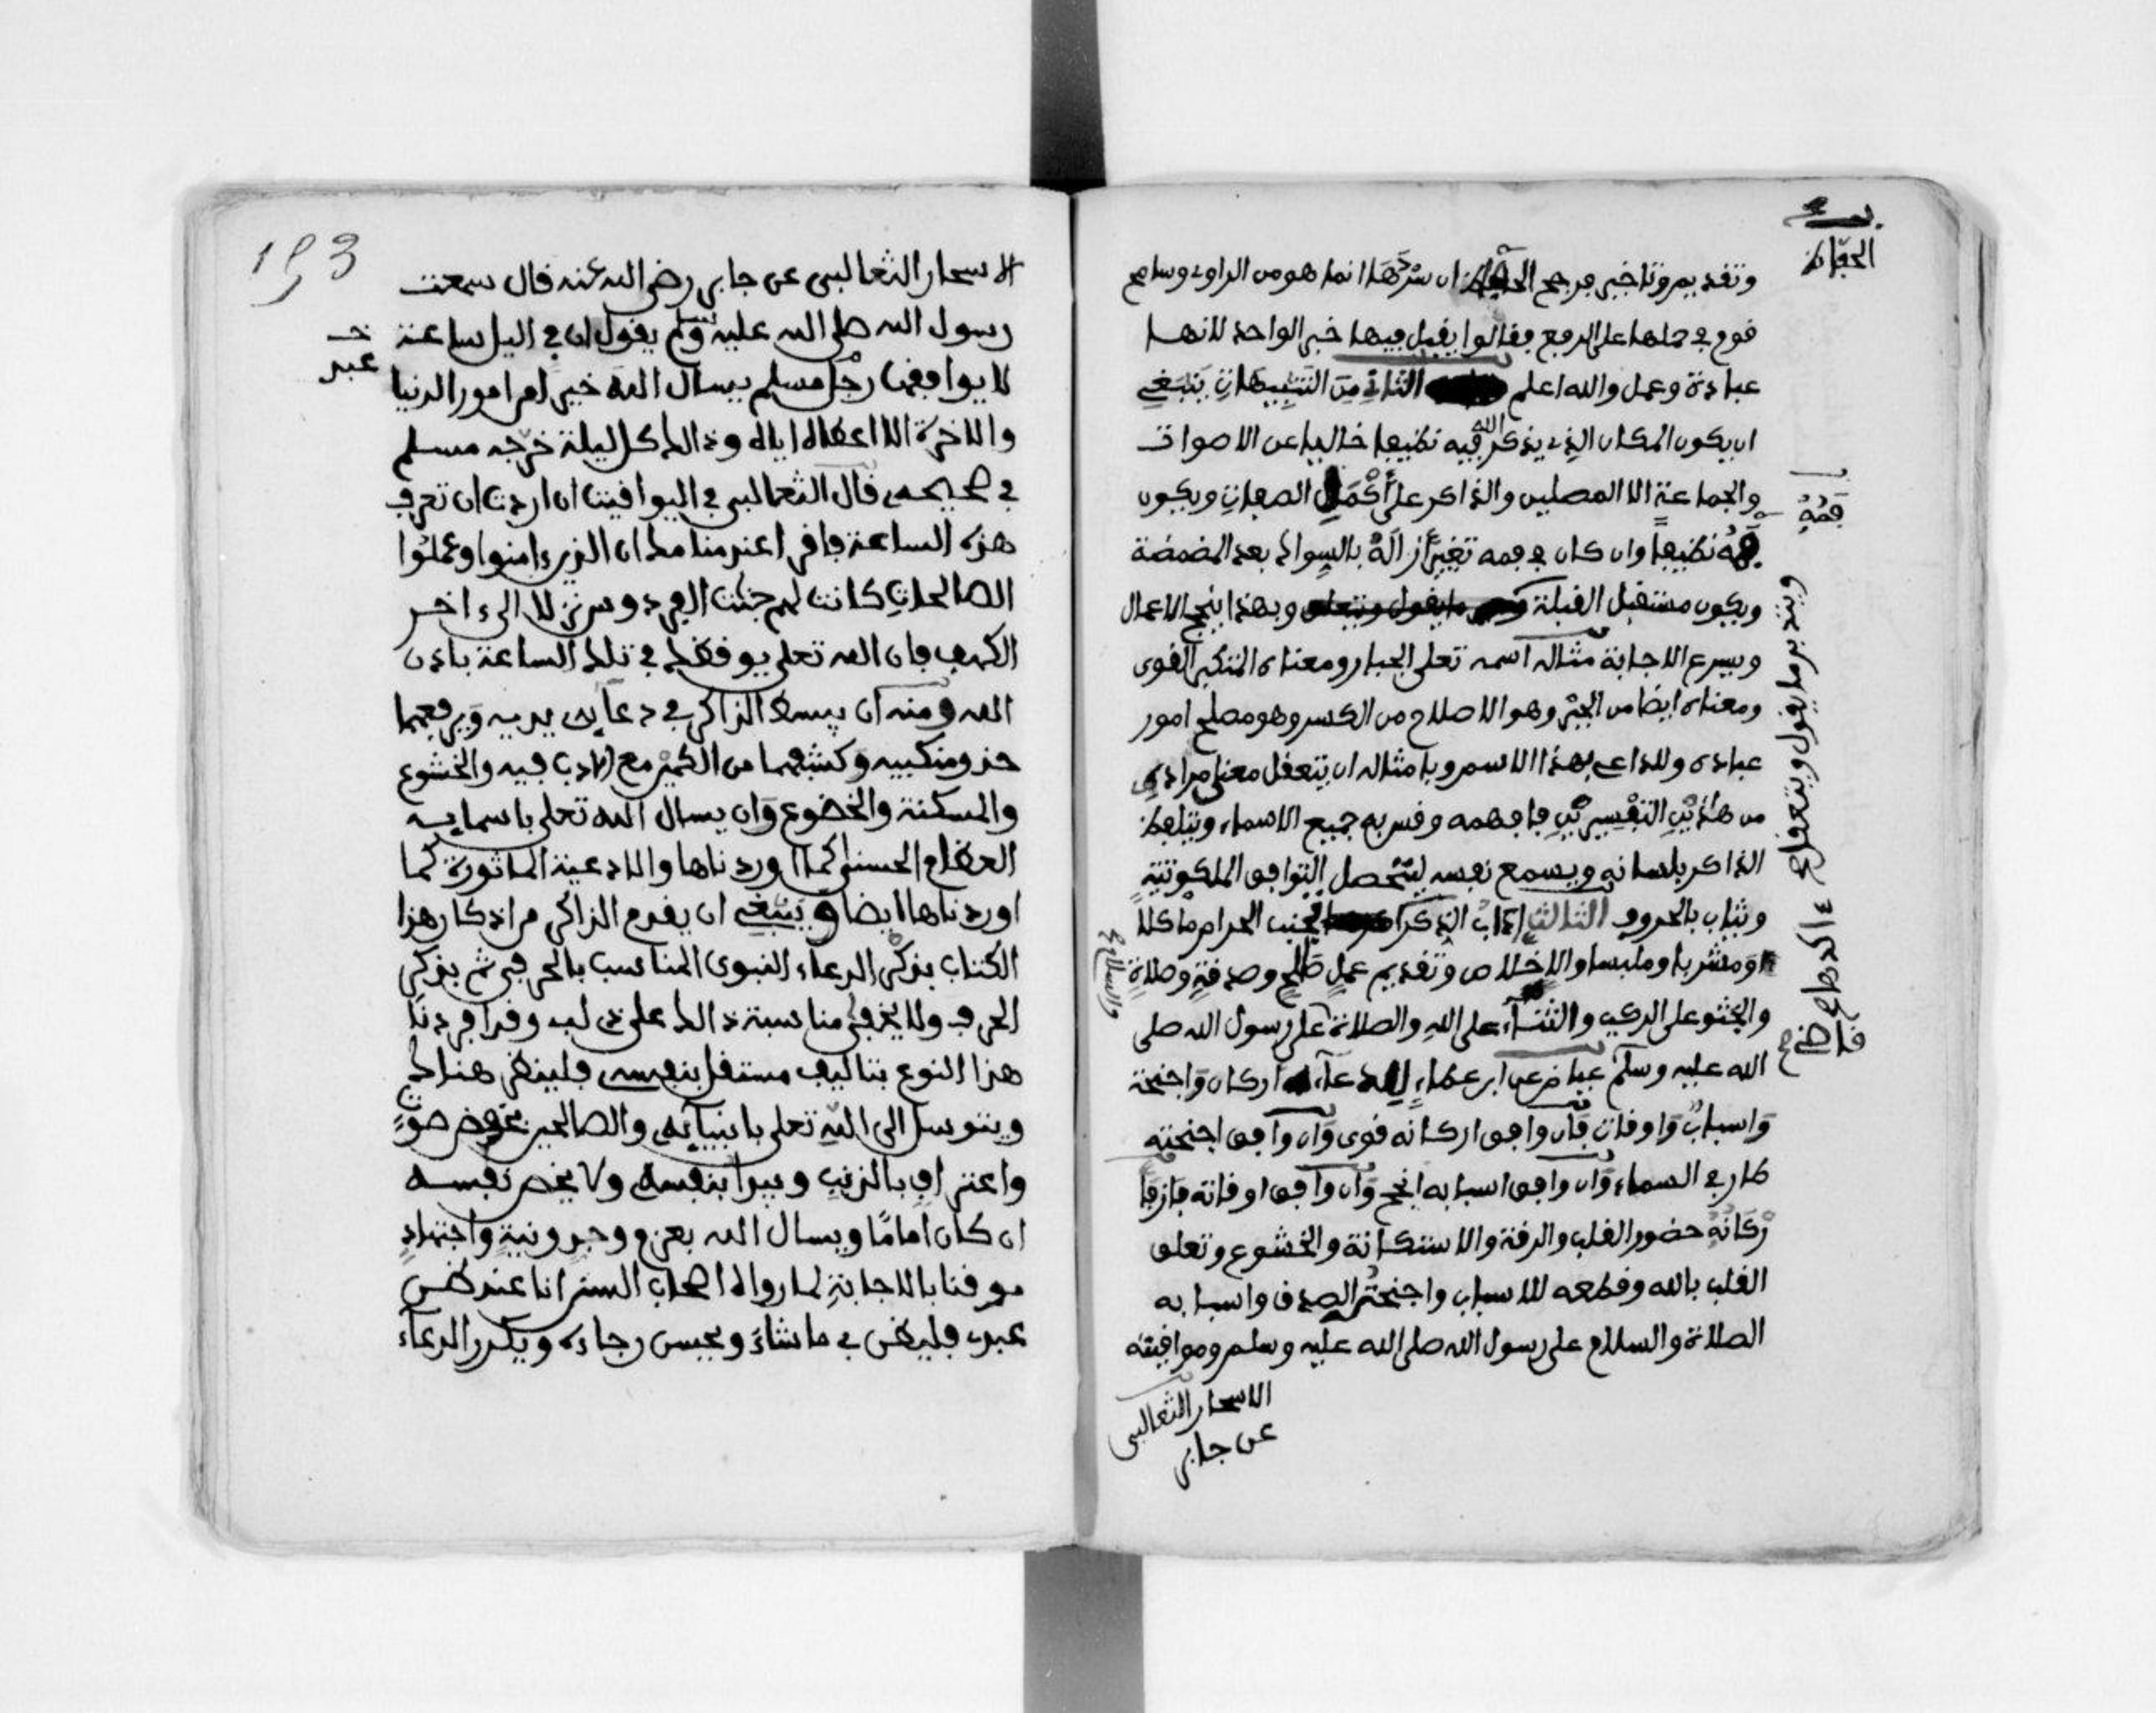 وتقديم وتاخير مرجح الحفاظ ان شرها انما هو من الراوي وسامح
قوم في حملها على الرفع فقالوا يقبل فيها خبر الواحد لانها
عبادة وعمل والله اعلم الثاني من التنبيهات ينبغي
ان يكون المكان الذي يذكر الله فيه نظيفا خاليا عن الاصوات
والجماعة الا المصلين والذاكر على أكمل الصفات ويكون
فمه نظيفا وان كان في فمه تغير أزاله بالسواك بعد المضمضة
ويكون مستقبل القبلة وبهذا ينجح الاعمال
ويسرع الاجابة مثاله اسمه تعلى الجبار ومعناه المتكبر القوي
ومعناه ايضا من الجبر وهو الاصلاح من الكسر وهو مصلح امور
عباده وللداعي بهذا الاسم وبامثاله ان يتعقل معنى مراده
من هذين التفسيرين فافهمه وقس به جميع الاسماء ويتلفظ
الذاكر بلسانه ويسمع نفسه ليتحصل التوافق الملكوتية
وثياب بالحروف الثالث اداب الذكر تجنب الحرام ماكلا
اومشربا وملبسا والاخلاص وتقديم عمل صالح وصدقة وصلاة
والجثو على الركب والثناء على الله والصلاة على رسول الله صلى
الله عليه وسلم عياض عن ابن عطاء للدعاء اركان واجنحة
واسباب واوقات فان وافق اركانه قوي وان وافق اجنحته
طار في السماء وان وافق اسبابه انجح وان وافق اوقاته فاز فا
ركانه حضور القلب والرقة والاستكانة والخشوع وتعلق
القلب بالله وقطعه للاسباب واجنحته الصدق واسبابه
الصلاة والسلام على رسول الله صلى الله عليه وسلم وموافيقته
الاسحار الثعالبي
عن جابر
الحفاظ
فمه
ويتدبر ما يقول ويتعقله
والسلام
193
الاسحار الثعالبي عن جابر رضي الله عنه قال سمعت
رسول الله صلى الله عليه وسلم يقول ان في اليل ساعة
لا يوافقها رجل مسلم يسال الله خيرا من امور الدنيا
والاخرة الا اعطاه اياه وذالك كل ليلة خرجه مسلم
في صحيحه قال الثعالبي في اليواقيت ان اردت ان تعرف
هذه الساعة فاقرا عند منامك ان الذين ءامنوا وعملوا
الصالحات كانت لهم جنت الفردوس نزلا الى ءاخر
الكهف فان الله تعلى يوقظك في تلك الساعة باذن
الله ومنه ان يبسط الذاكر في دعايه يديه ويرفعهما
حذو منكبيه وكشفهما من الكم مع الادب فيه والخشوع
والمسكنة والخضوع وان يسال الله تعلى باسمايه
العظام الحسنى كما اوردناها والادعية الماثورة كما
اوردناها ايضا وينبغي ان يقدم الذاكر من اذكار هذا
الكتاب بذكر الدعاء النبوي المناسب بالحرف ثم يذكر
الحرف ولا يخفى مناسبة ذالك على ذي لب وقد افردنا
هذا النوع بتاليف مستقل بنفسه فلينظر هنالك
ويتوسل الى الله تعلى بانبيائه والصالحين بخفض صوت
واعتراف بالذنب ويبدا بنفسه ولا يخص نفسه
ان كان اماما ويسال الله بعزم وجد ونية واجتهاد
موقنا بالاجابة لما رواه اصحاب السنن انا عند ظن
عبدي فليظن بي ما شاء ويحسن رجاءه ويكرر الدعاء
عبد